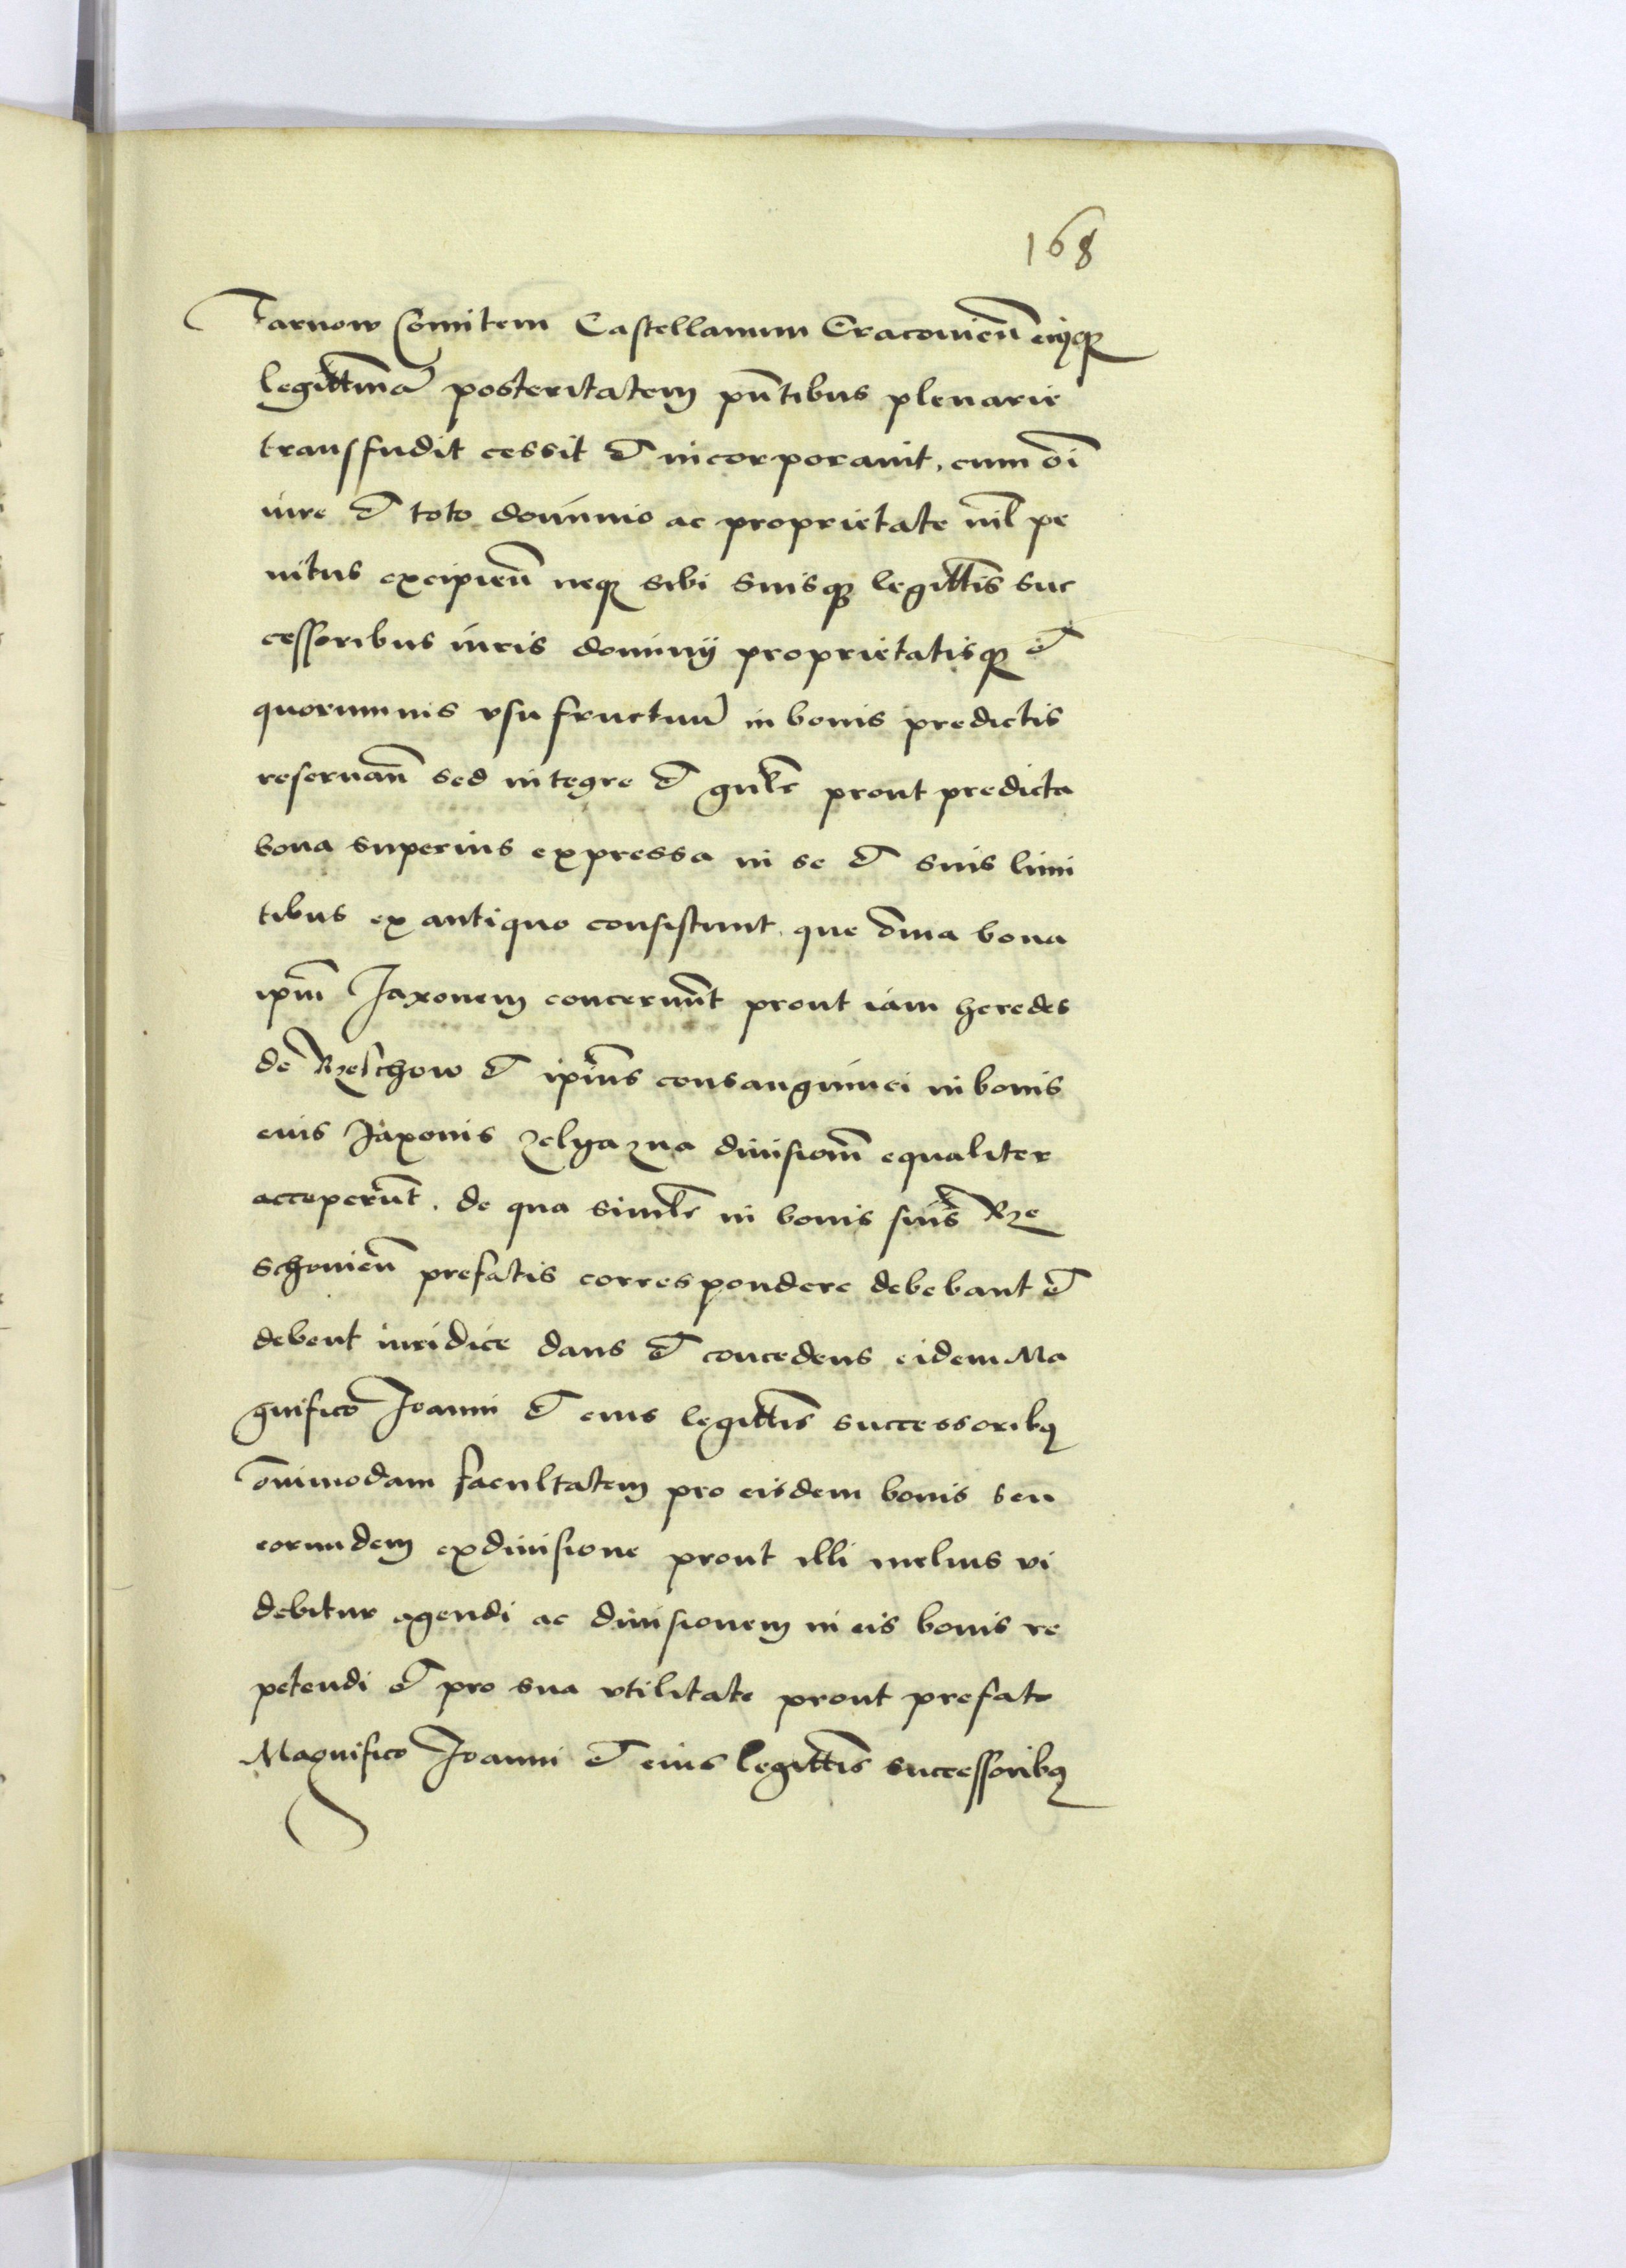 168
Tarnow Comitem Castellanum Cracovień eiusq̃
legittimā posteritatem pñtibus plenarie
transfudit cessit et incorporavit, cum oī
iure et toto dominio ac proprietate nil pe
nitus excipieñ neq̃ sibi suisq̃ legittīs suc
cessoribus iuris dominij proprietatisq̃ et
quorumvis usufructuū in bonis predictis
reservañ sed integre et gñlr prout predicta
bona superius expressa in se et suis limi
tibus ex antiquo consistunt. que om̃ia bona
ip̄m Jaxonem concernūt prout iam heredes
de Rzeschow et ip̄ius consanguinei in bonis
eius Jaxonis Zelyazna divisiom̄ equaliter
acceperūt. de qua similr in bonis suis Rze
schovień prefatis correspondere debebant et
debent iuridice dans et concedens eidem Ma
gnifico Joanni et eius legittīs successoribq
om̄imodam facultatem pro eisdem bonis seu
eorumdem exdivisione prout illi melius vi
debitur agendi ac divisionem in eis bonis re
petendi et pro sua utilitate prout prefato
Magnifico Joanni et eius legittīs successoribq